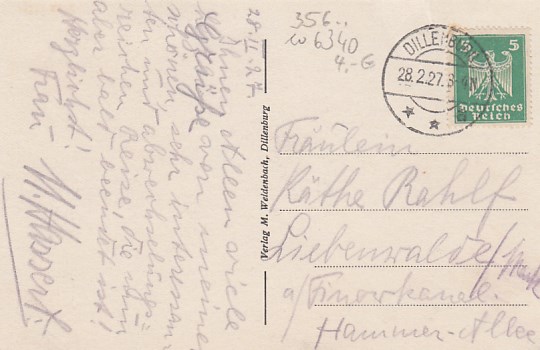 28.II.27.
Ihnen Allen viele
Grüße von meiner
schönen sehr interessan-
ten und abwechselungs=
reichen Reise, die nun
aber bald beendet ist!
Herzlichst!
Frau
356..
W 6340
4.-€
DILLENBURG
28.2.27.
5
Deutsches
Reich
Verlag M. Weidenbach, Dillenburg
Fräulein
Käthe Rahlf
Liebenwalde/Mark
a/Finowkanal.
Hammer-Allee